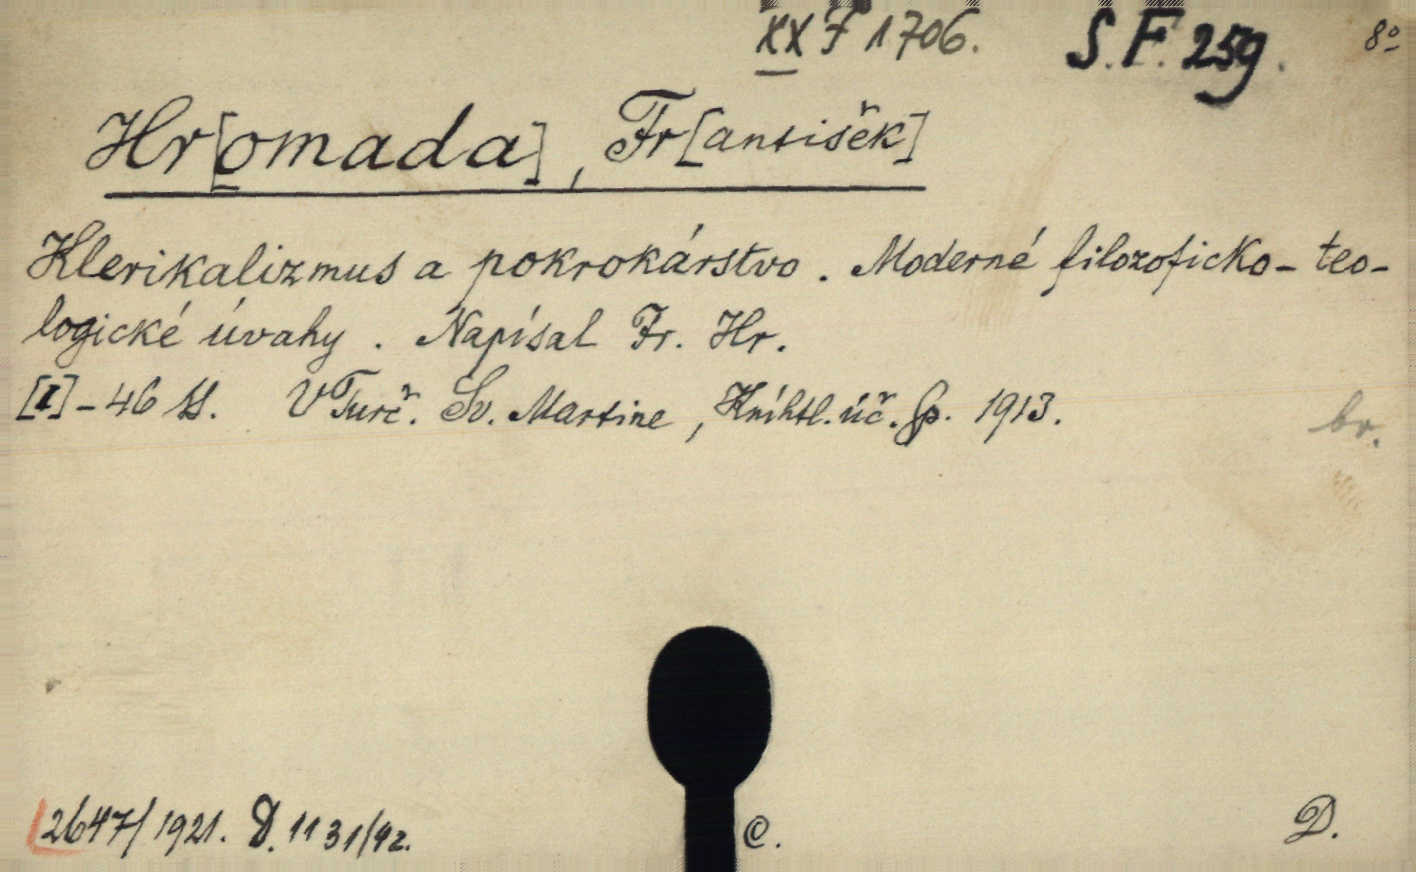 XX F 1706. S. F. 259. 8º
Hr[omada], Fr[antišek]
Klerikalizmus a pokrokárstvo. Moderné filozoficko-teo-
logické úvahy. Napísal Fr. Hr.
[I]-46 s. V Turč. Sv. Martine, Kníhtl. úč. sp. 1913. br.
2647/1921. D. 1131/42. C. D.